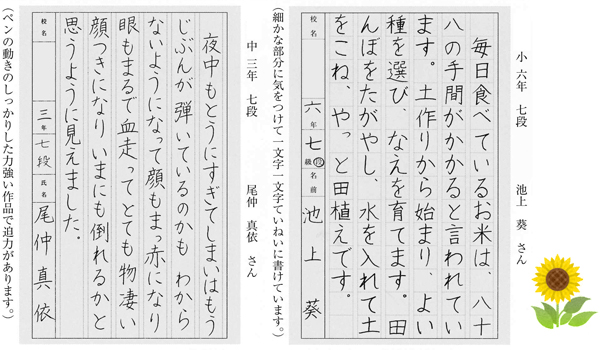 小 六年　七段　　池上　葵　さん
毎日食べているお米は、八十
八の手間がかかると言われてい
ます。土作りから始まり、よい
種を選び、なえを育てます。田
んぼをたがやし、水を入れて土
をこね、やっと田植えです。
校名　六年　七級段　名前　池上　葵
（細かな部分に気をつけて一文字一文字ていねいに書けています。）
中 三年　七段　　尾仲　真依　さん
夜中もとうにすぎてしまいはもう
じぶんが弾いているのかも わから
ないようになって顔もまっ赤になり
眼もまるで血走ってとても物凄い
顔つきになりいまにも倒れるかと
思うように見えました。
校名　三年　七段　氏名　尾仲 真依
（ペンの動きのしっかりした力強い作品で迫力があります。）